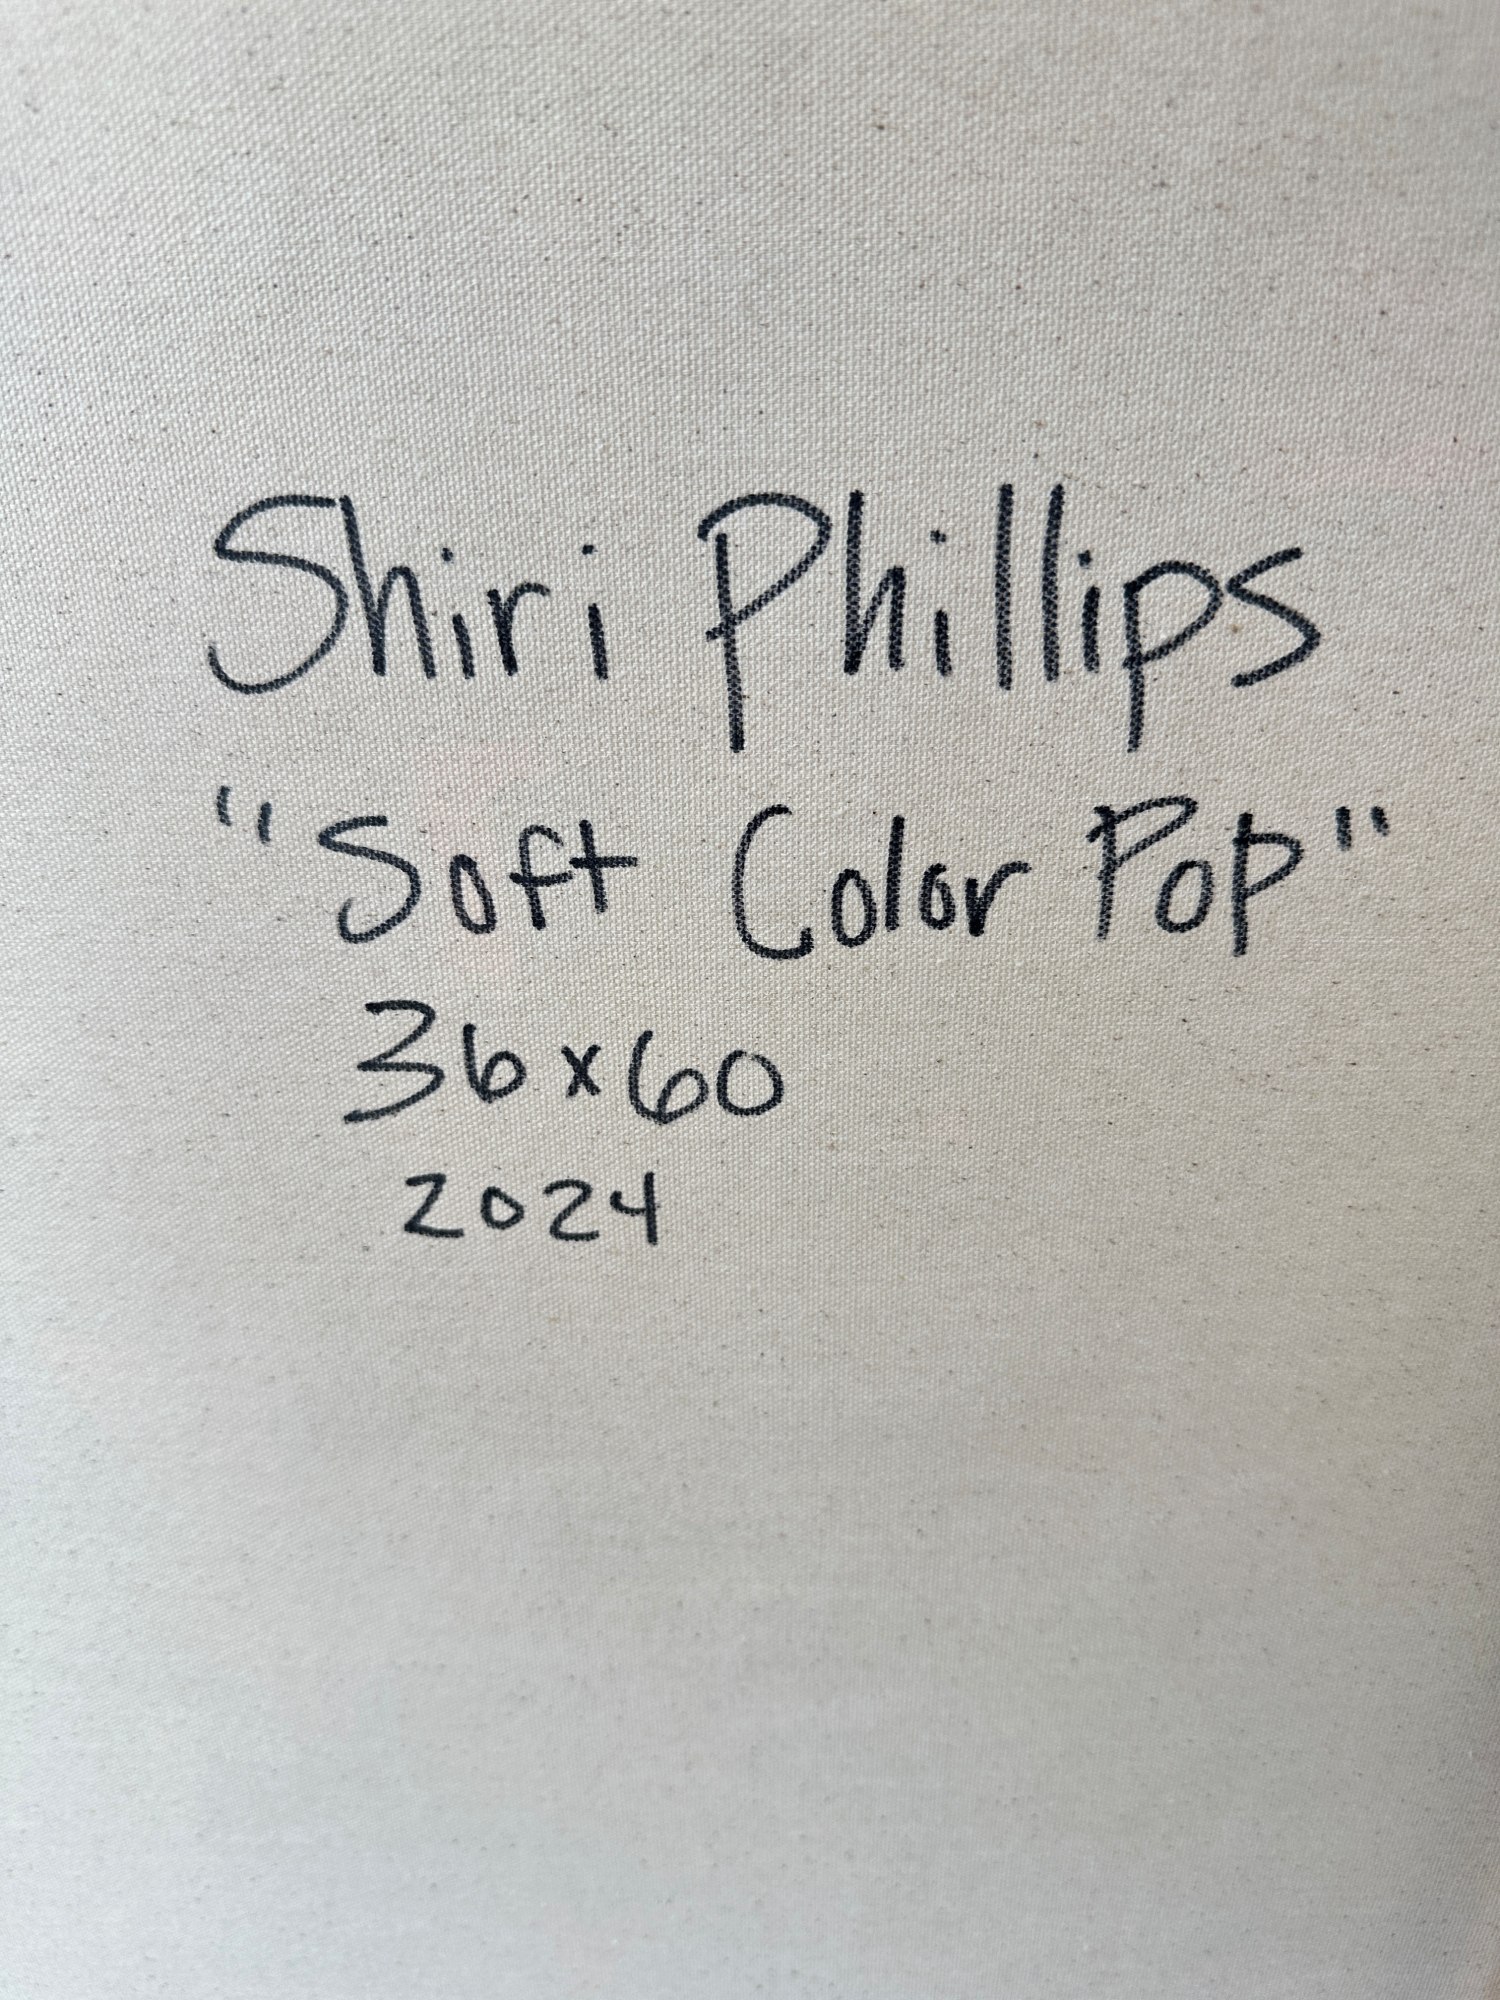 Shiri Phillips
"Soft Color Pop"
36x60
2024